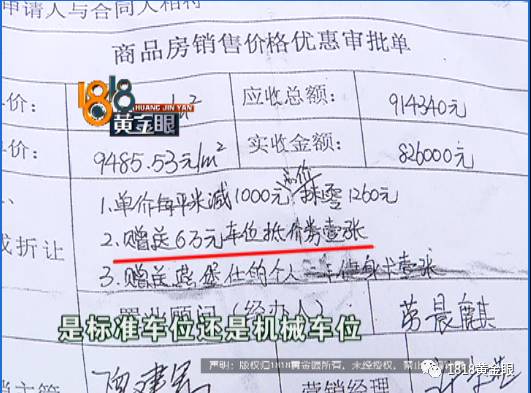 申请人与合同人相符
商品房销售价格优惠审批单
价:
m²
应收总额:
914340元
1818
HUANG JIN YAN
黄金眼
价:
9485.53元/m²
实收金额:
826000元
1.单价每平米减1000元 总价 抹零1260元
2.赠送6万元车位抵价券壹张
或折让
3.赠送
的个人
壹张
置业顾问(经办人)
是标准车位还是机械车位
声明:版权归1818黄金眼所有,未经授权,禁止
销主管
营销经理
1818黄金眼